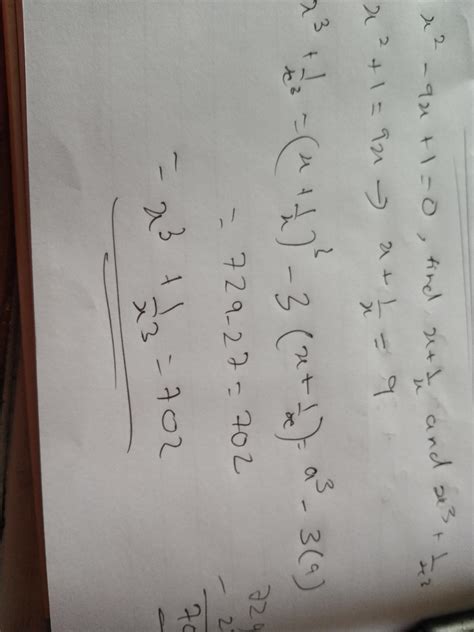 x² - 9x + 1 = 0, find x + 1/x and x³ + 1/x³
x² + 1 = 9x → x + 1/x = 9
x³ + 1/x³ = (x + 1/x)³ - 3(x + 1/x) = a³ - 3(9)
= 729 - 27 = 702
= x³ + 1/x³ = 702
729
- 2
70